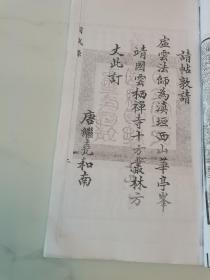 請帖敦請
虛雲法師為滇垣西山華亭峯
靖國雲栖禪寺十方叢林方
丈此訂
唐繼堯和南